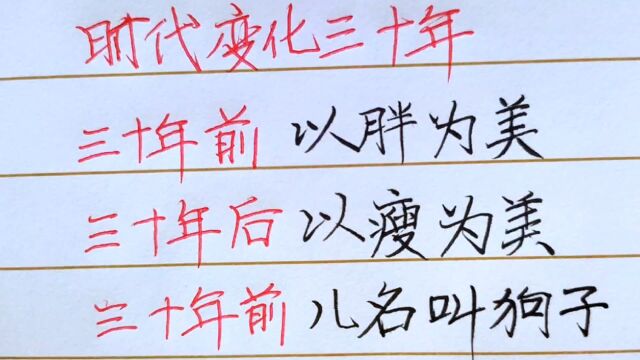 时代变化三十年
三十年前 以胖为美
三十年后 以瘦为美
三十年前 儿名叫狗子